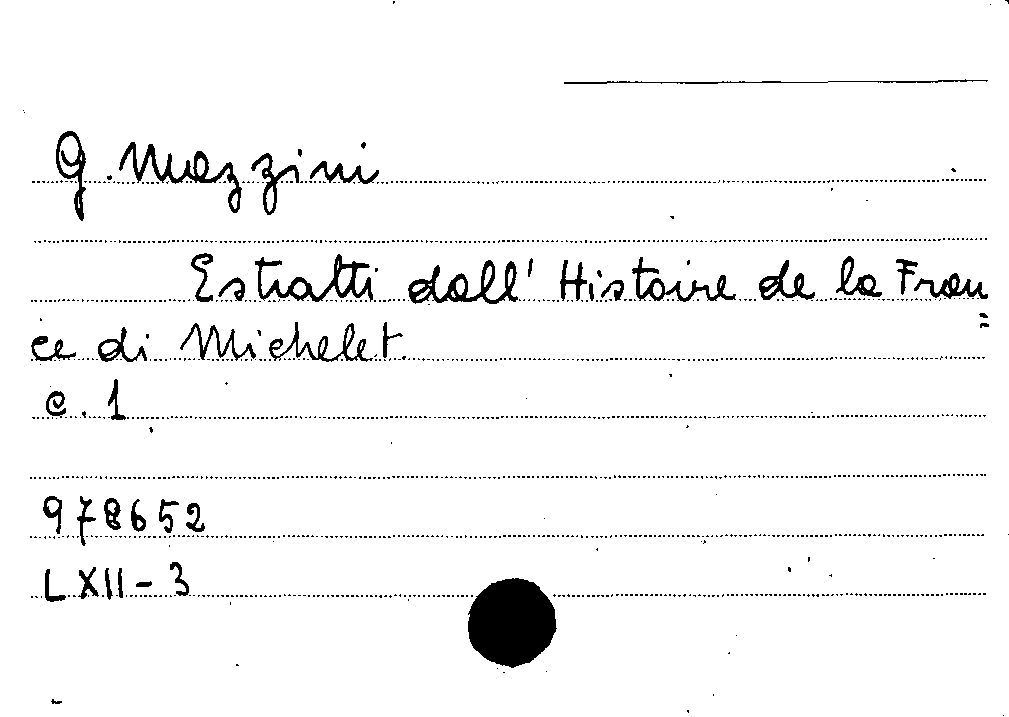 G. Mazzini
Estratti dall' Histoire de la Fran=
ce di Michelet.
c. 1
978652
LXII-3